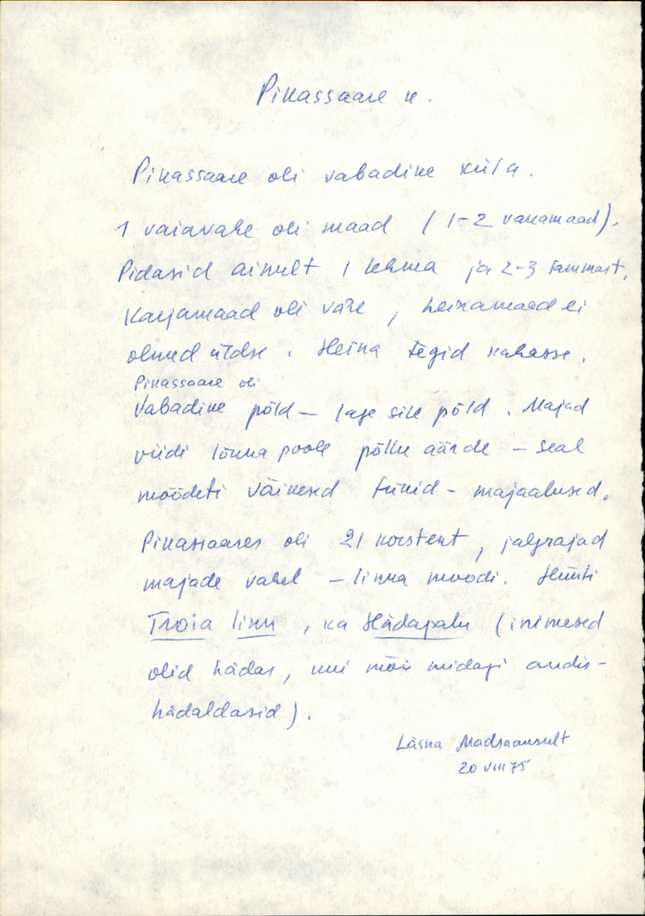 Pikassaare k.
Pikassaare oli vabadike küla.
1 vaiavahe oli maad (1-2 vakamaad).
Pidasid ainult 1 lehma ja 2-3 lammast,
Karjamaad oli vähe, heinamaad ei
olnud üldse. Heina tegid kahasse.
Pikassaare oli
Vabadike põld - lage sile põld. Majad
viidi lõuna poole põllu äärde - seal
mõõdeti väikesed tükid - majaalused.
Pikassaares oli 21 korstent, jalgrajad
majade vahel - linna moodi. Hüüti
Troia linn, ka Hädapalu (inimesed
olid hädas, kui mõis midagi andis -
hädaldasid).
Lasna Madsaansult
20 VIII 75